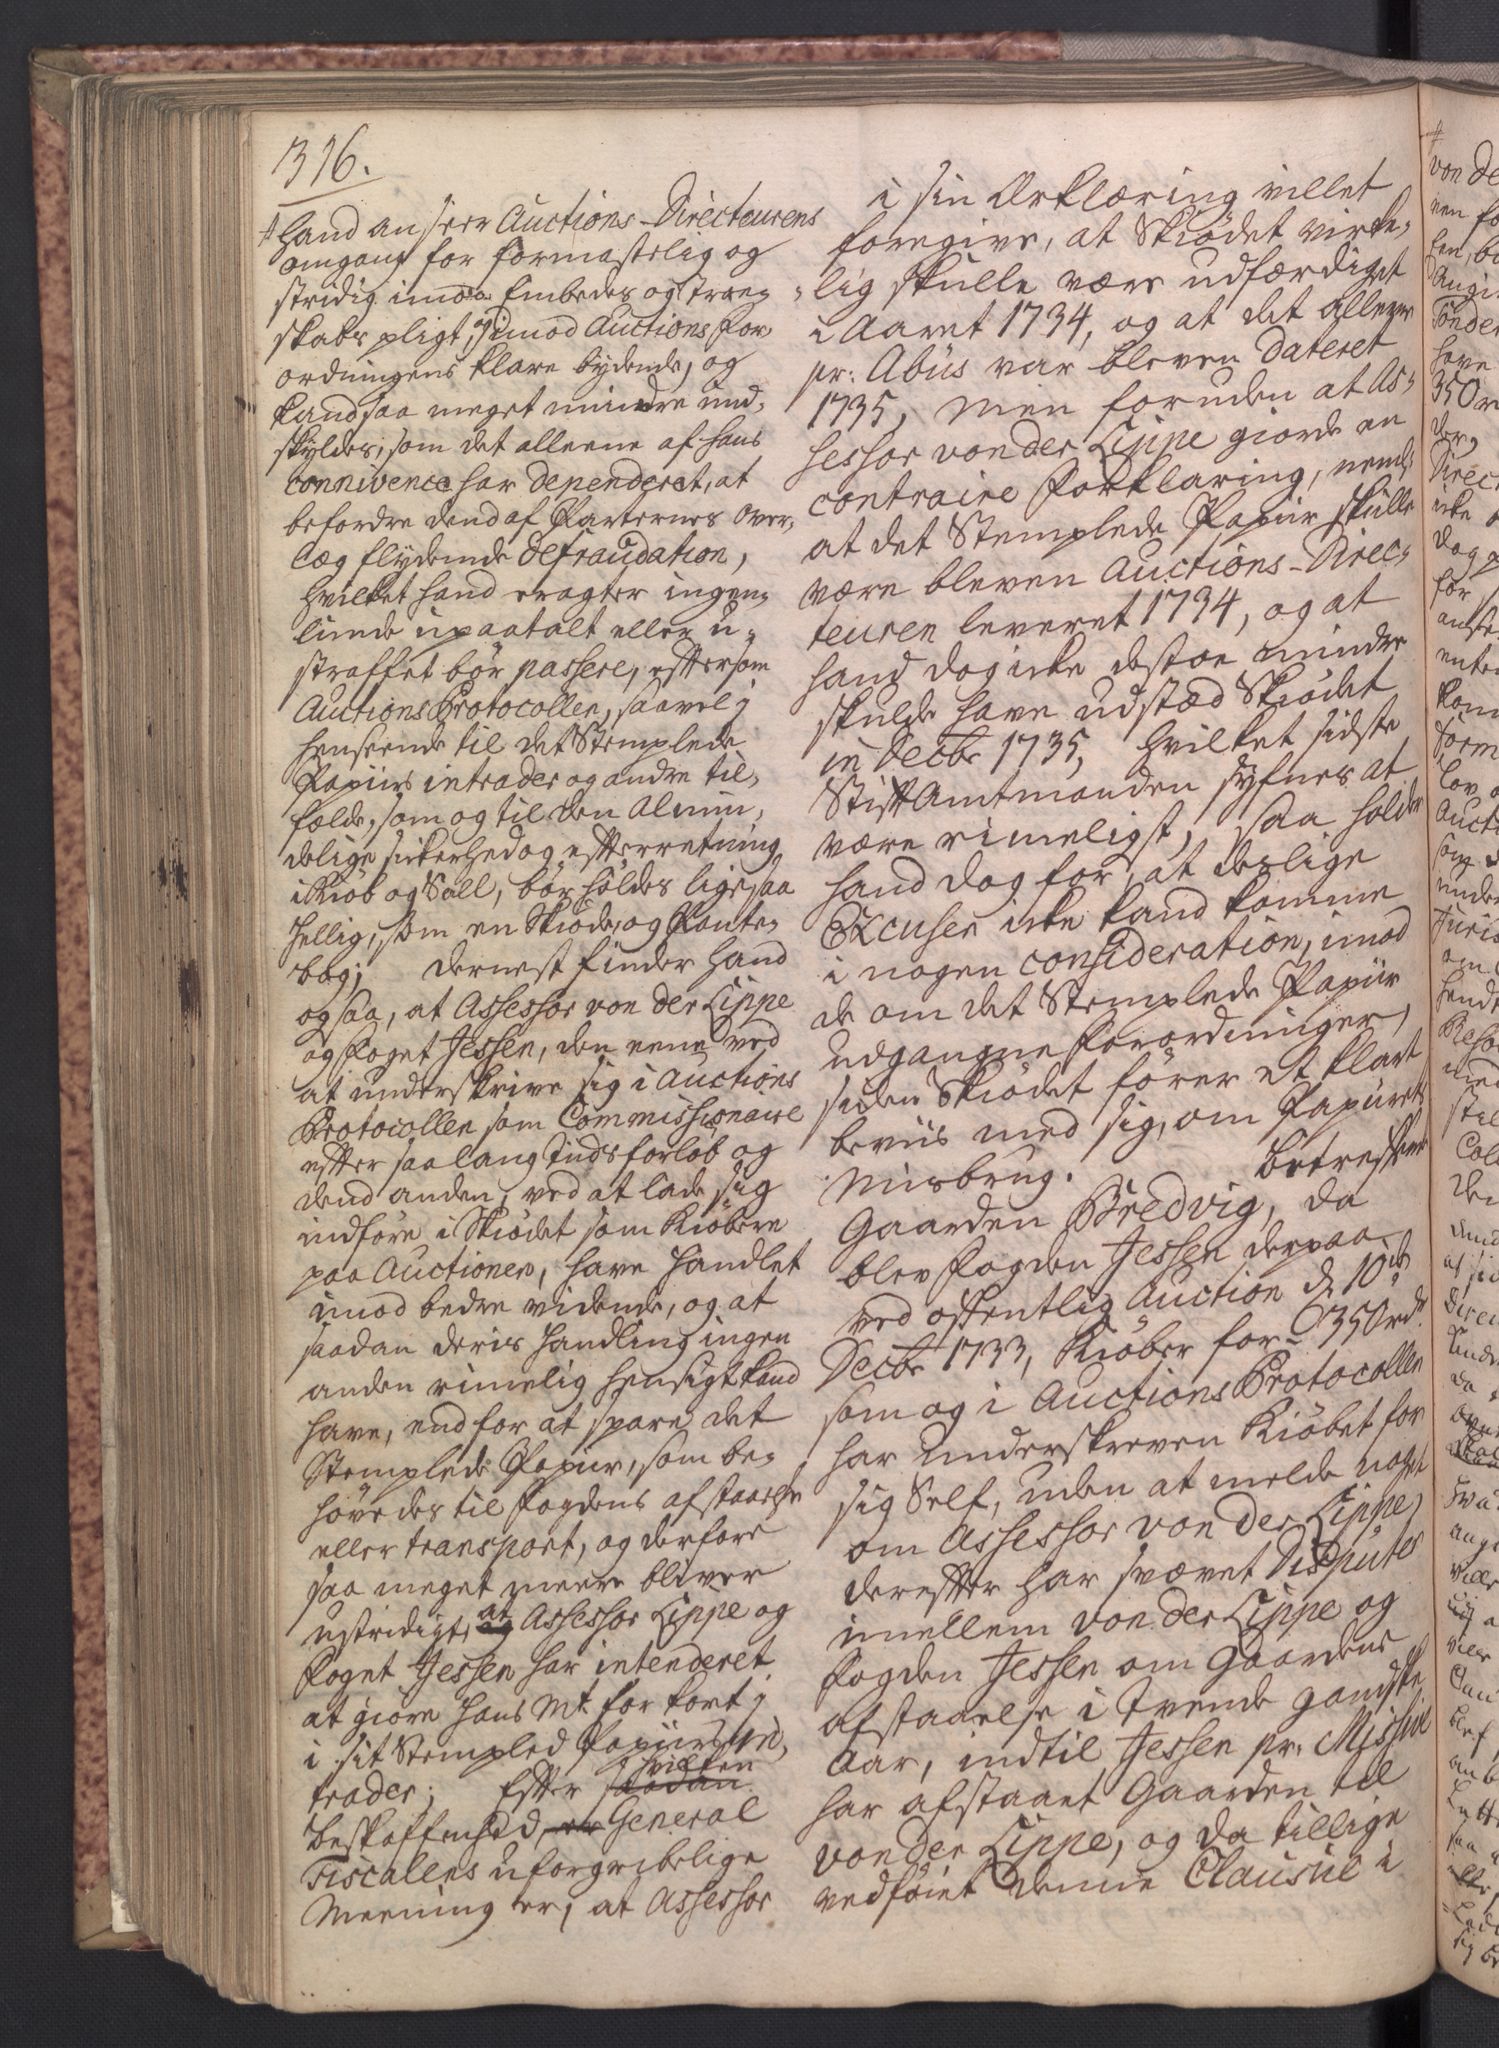 316.
# hand anseer Auctions-Directeurens
omgang for formastelig og
stridig imod Embedes og troe-
skabs pligt, imod Auctions For
ordningens klare bydende, og
kand saa meget mindre und-
skyldes, som det alleene af hans
connivence har dependeret, at
befordre dend af Parternes over-
læg flydende defraudation,
hvilket hand eragter ingen-
lunde upaatalt eller u-
straffet bør passere, eftersom
Auctions Protocollen, saavel i
henseende til det Stemplede
Papiirs intrader og andre til-
fælde, som og til den Almin-
delige sikerhed og efterretning
i Kiøb og Sall, bør holdes lige saa
hellig, som en Skiøde og Pante-
bog; dernest finder hand
ogsaa, at Assessor von der Lippe
og Foget Jessen, den eene ved
at underskrive sig i Auctions
Protocollen som Commissionaire
efter saa lang tids forløb og
dend anden, ved at lade sig
indføre i Skiødet som Kiøbere
paa Auctionen, have handlet
imod bedre vidende, og at
saadan deris handling ingen
anden rimelig hensigt kand
have, end for at spare det
Stemplede Papiir, som be-
høvedes til Fogdens afstaaelse
eller transport, og derfore
saa meget meere bliver
ustridigt, at Assessor Lippe og
Foget Jessen har intenderet
at giøre Hans Mt. for kort i
i sit Stempled Papiirs in-
trader; Efter saadan hvilken
beskaffenhed, er General
Fiscalens uforgribelige
Meening er, at Assessor
i sin Erklæring villet
foregive, at Skiødet virke-
lig skulle være udfærdiget
i Aaret 1734, og at det alleene
pr: Abus var bleven dateret
1735, men foruden at As-
sessor von der Lippe giorde en
contraire Forklaring, nemlig
at det Stemplede Papiir skulle
være bleven Auctions-Direc-
teuren leveret 1734, og at
hand dog icke destoe mindre
skulde have udstæd Skiødet
in Decbr 1735, hvilket sidste
Stiftamtmanden syfnes at
være rimeligst, saa holder
hand dog for, at deslige
Excuser icke kand komme
i nogen consideration, imod
de om det Stemplede Papiir
udgangne Forordninger,
siden Skiødet fører et klart
beviis med sig, om Papiirets
Misbrug. betreffende
Gaarden Bredvig, da
blev Fogden Jessen derpaa
ved offentlig Auction d. 10de
Decbr 1733, Kiøber for 350 rd.
som og i Auctions Protocollen
har underskreven Kiøbet for
sig Self, uden at melde noget
om Assessor von der Lippe,
derefter har svævet Disputes
imellem von der Lippe og
Fogden Jessen om Gaardens
afstaaelse i tvende gandske
Aar, indtil Jessen pr: Missive
har afstaaet Gaarden til
von der Lippe, og da tillige
vedføiet denne Clausul i